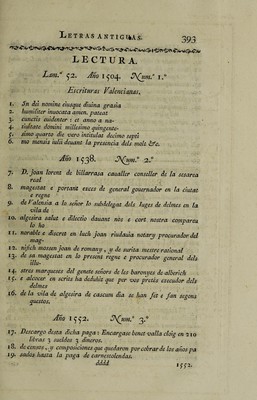 LETRAS ANTIGUAS. 393
LECTURA.
Lam.ª 52. Año 1504. Num.º 1.º
Escrituras Valencianas.
1. In dei nomine eiusque diuina gratia
2. humiliter inuocata amen. pateat
3. cunctis euidenter : et anno a na-
4. tiuitate domini millesimo quingente-
5. simo quarto die vero intitulat decimo septi
6. mo mensis iulii dauant la presencia dels molt &c.
Año 1538. Num.º 2.º
7. D. joan lorens de billarrasa caualler conseller de la sesarea real
8. magestat e portant veces de general gouernador en la ciutat e regne
9. de Valensia a lo señor lo subdelegat dels luges de delmes en la vila de
10. algesira salut e dilectio dauant nos e cort nostra comparex lo ho
11. norable e discret en luch joan riudauia notary procurador del mag-
12. nifich mossen joan de romany , y de surita mestre rational
13. de sa magestat en lo present regne e procurador general dels illu-
14. stres marqueses del genete señors de les baronyes de alberich
15. e alcocer en scrits ha deduhit que per vos pretés executor dels delmes
16. de la vila de algesira de cascum dia se han fet e fan segons questos.
Año 1552. Num.º 3.º
17. Descargo desta dicha paga : Encargase benet valla clóig en 210 libras 3 sueldos 3 dineros.
18. de censos , y composiciones que quedaren por cobrar de los años pa
19. ssados hasta la paga de carnestolendas.
dddd 1552.